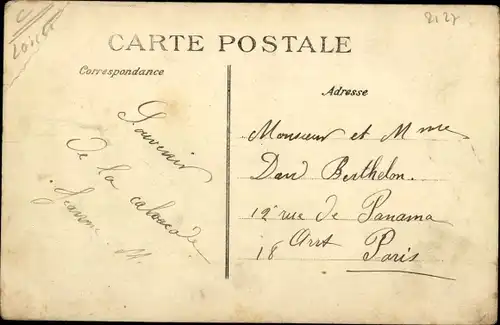 2127
CARTE POSTALE
Correspondance
Adresse
Souvenir
de la
Jeanne M
Monsieur et Mme
Dan Berthelon.
12 rue de Panama
18 Arrt Paris